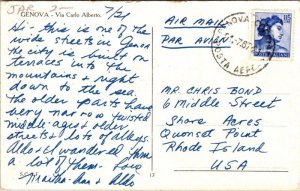 JAR 2—
GENOVA - Via Carlo Alberto.
7/21
Hi - this is one of the
wide streets in Genoa
the city is built on
terraces into the
mountains & right
down to the sea.
The older parts have
very narrow twisted
middle-aged older
streets & lots of alleys.
Aldo & I wandered thru
a lot of them. Love
Aldo
AIR MAIL
PAR AVION
GENOVA
POSTA AEREA
115
MR. CHRIS BOND
6 MIDDLE STREET
Shore Acres
QUONSET POINT
RHODE ISLAND
USA